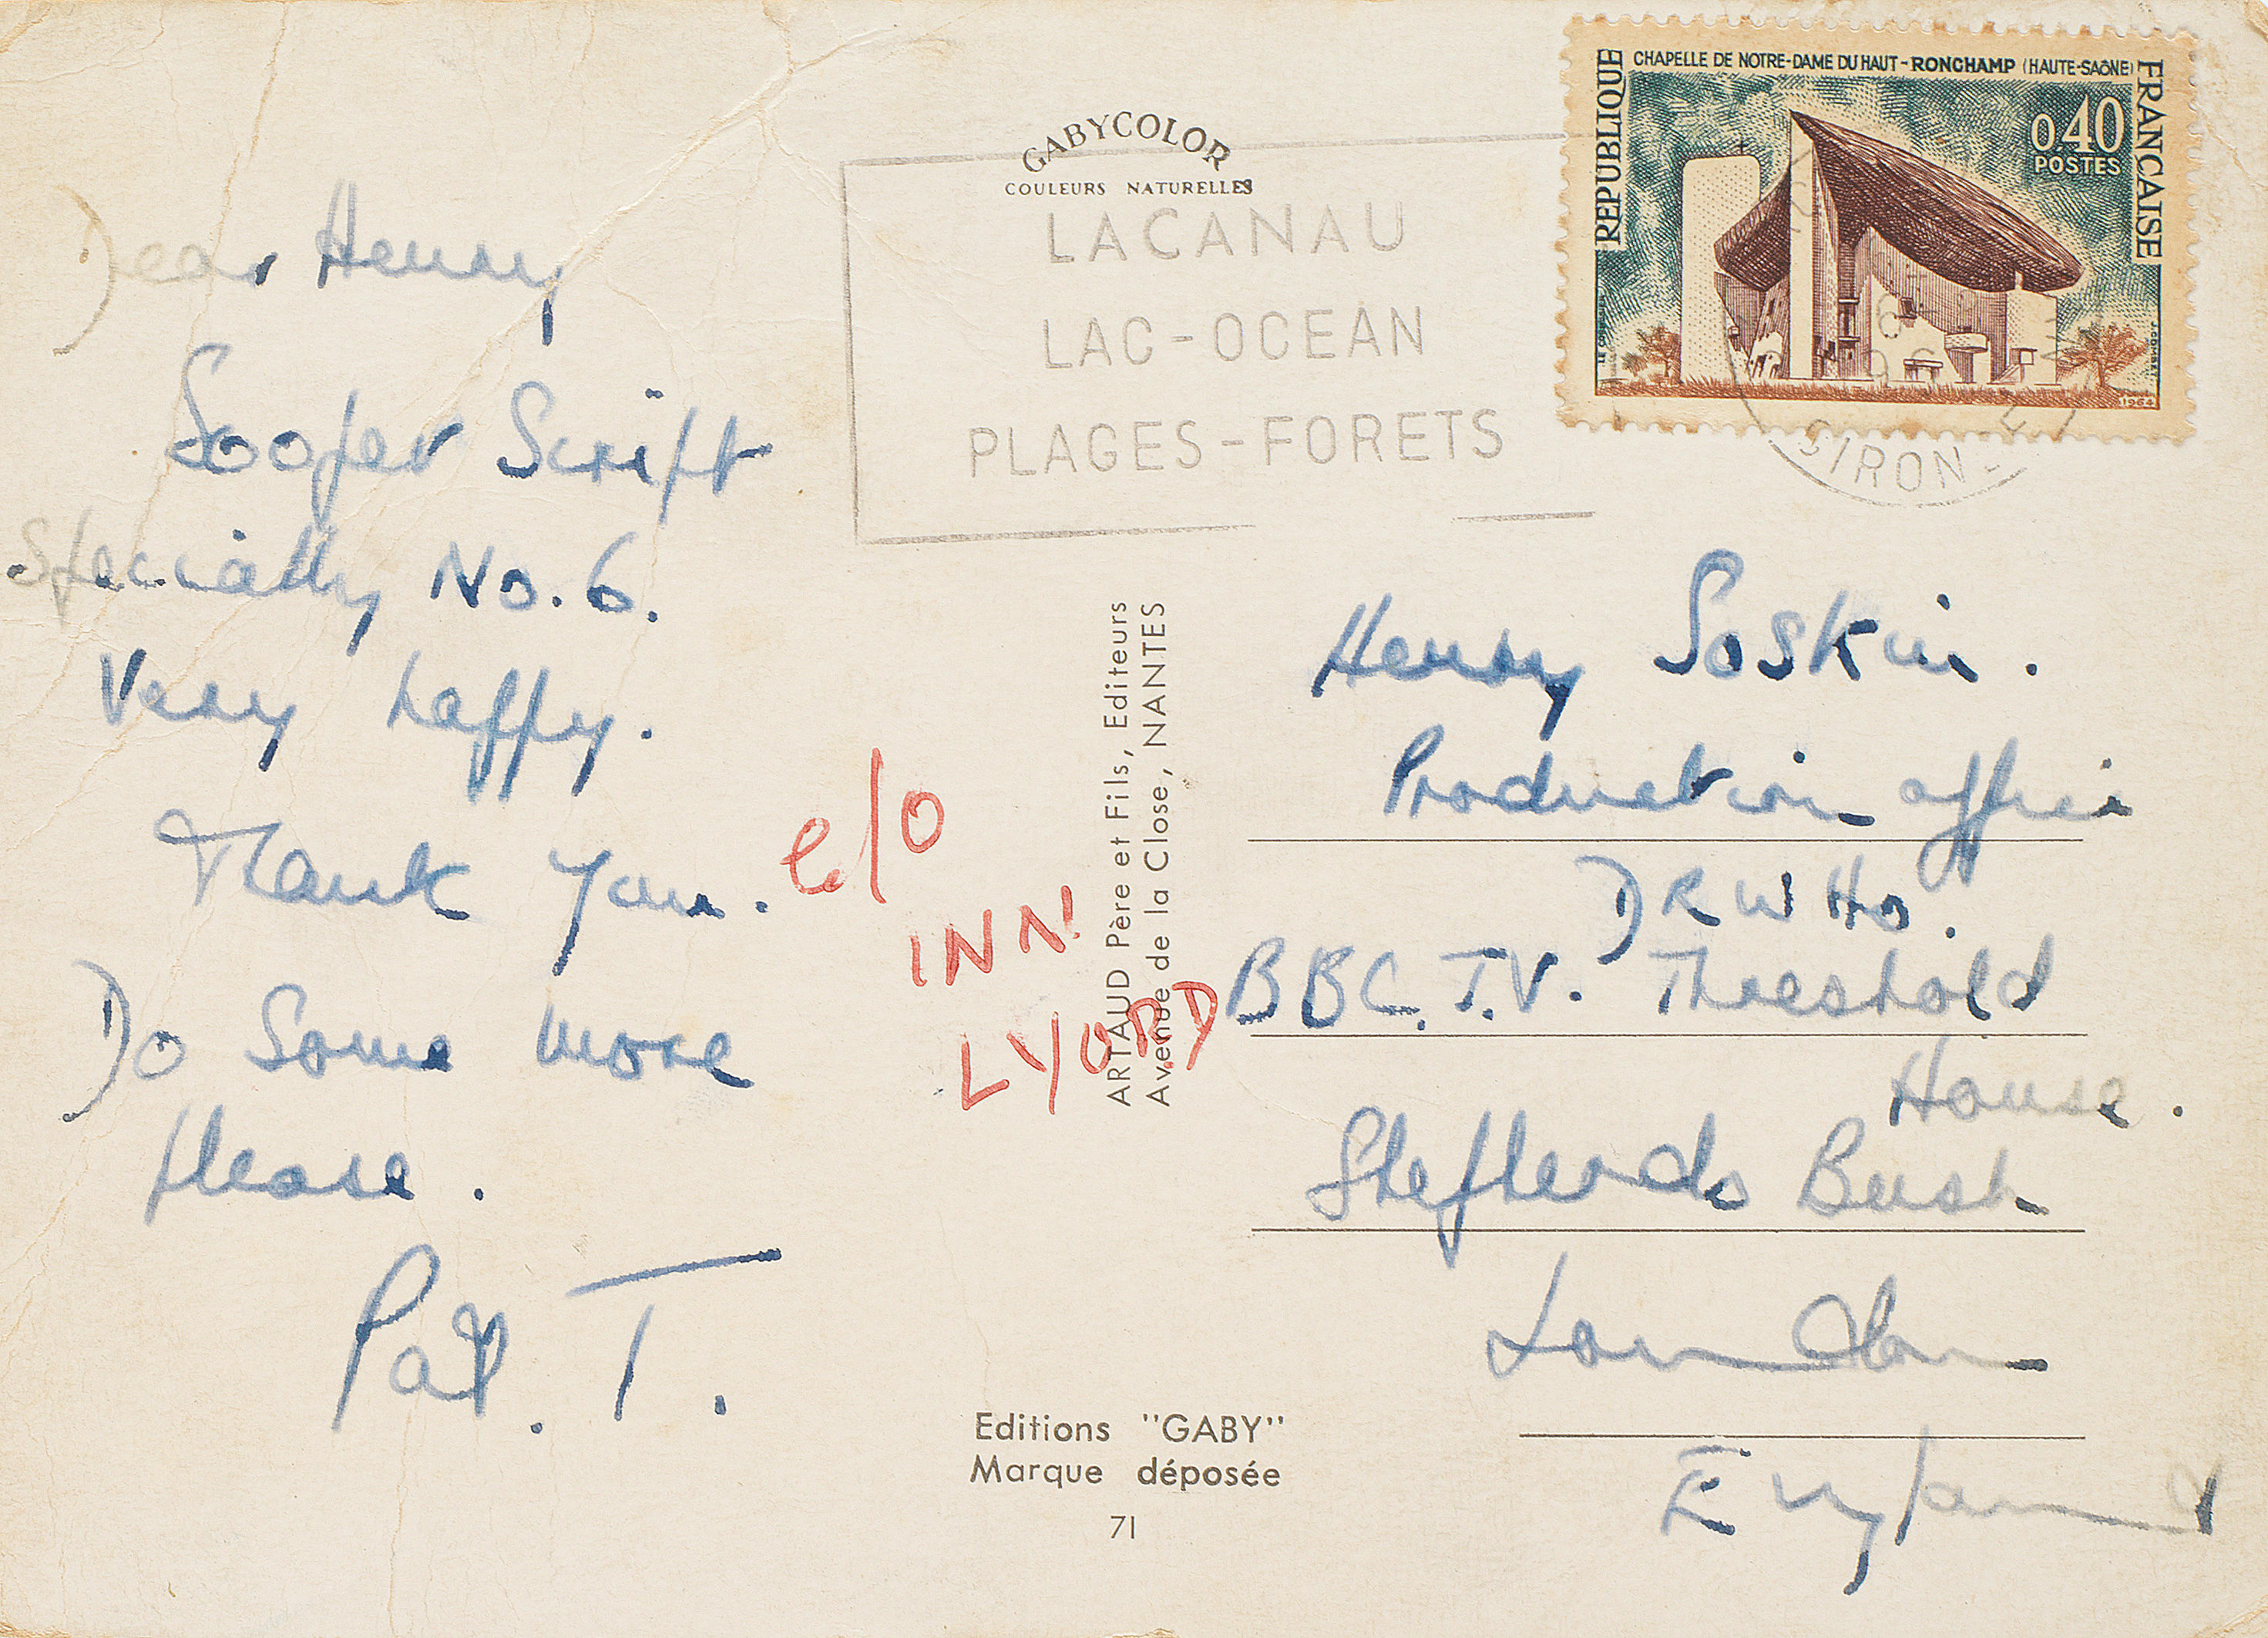 GABYCOLOR
COULEURS NATURELLES
LACANAU
LAC-OCEAN
PLAGES-FORETS
REPUBLIQUE
CHAPELLE DE NOTRE-DAME DU HAUT-RONCHAMP (HAUTE-SAÔNE)
FRANCAISE
0,40
POSTES
LE CORBUSIER
J.COMBET
1964
GIRONDE
Dear Henry
Sooper Script
Specially No. 6.
Very happy.
Thank you.
Do Some more
please.
Pat. T.
c/o
INN
LYORD
ARTAUD Père et Fils, Editeurs
Avenue de la Close, NANTES
Henry Soskin.
Production office
DR WHo.
BBC. T.V. Threshold
House.
Shepherds Bush
London
England
Editions "GABY"
Marque déposée
71